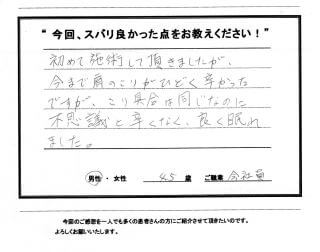 “今回、スバリ良かった点をお教えください！”
初めて施術して頂きましたが、
今まで肩のこりがひどく辛かった
ですが、こり具合は同じなのに
不思議と辛くなく、良く眠れ
ました。
男性・女性 45 歳 ご職業 会社員
今回のご感想を一人でも多くの患者さんの方にご紹介させて頂きたいのです。
よろしくお願いいたします。